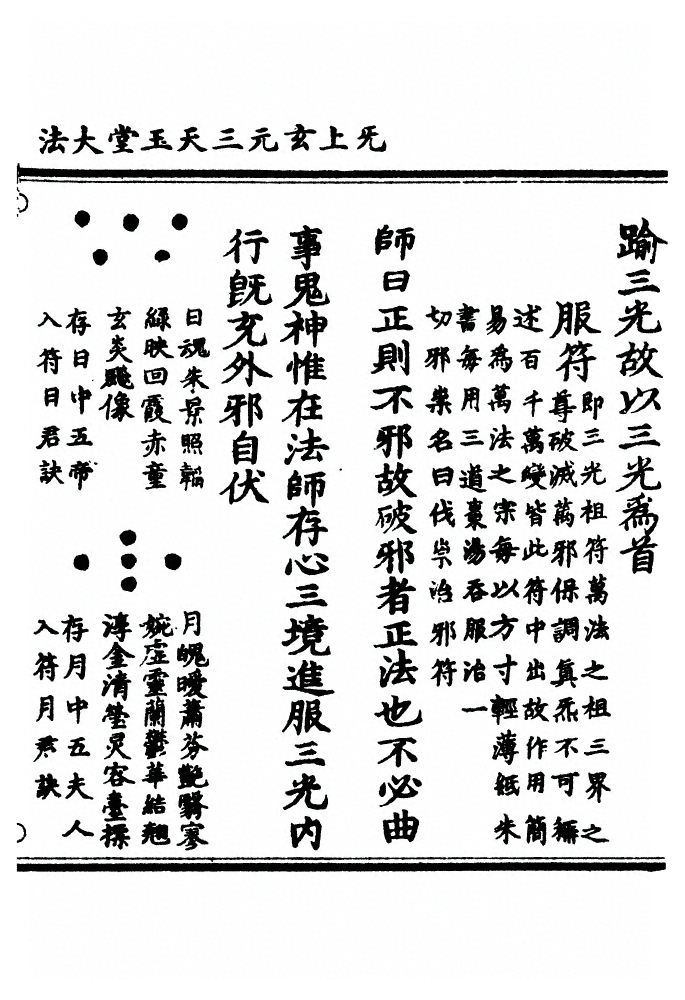 旡上玄元三天玉堂大法
踰三光故以三光爲首
服符即三光祖符萬法之祖三界之
尊破滅萬邪保調真炁不可編
述百千萬變皆此符中出故作用簡
易爲萬法之宗每以方寸輕薄紙朱
書每用三道棗湯吞服治一
切邪祟名曰伐祟治邪符
師曰正則不邪故破邪者正法也不必曲
事鬼神惟在法師存心三境進服三光內
行旣充外邪自伏
日魂朱景照韜
綠映回霞赤童
玄炎飈像
存日中五帝
入符日君訣
月魄曖蕭芬艷翳寥
婉虛靈蘭鬱華結翹
淳金清瑩炅容臺標
存月中五夫人
入符月君訣